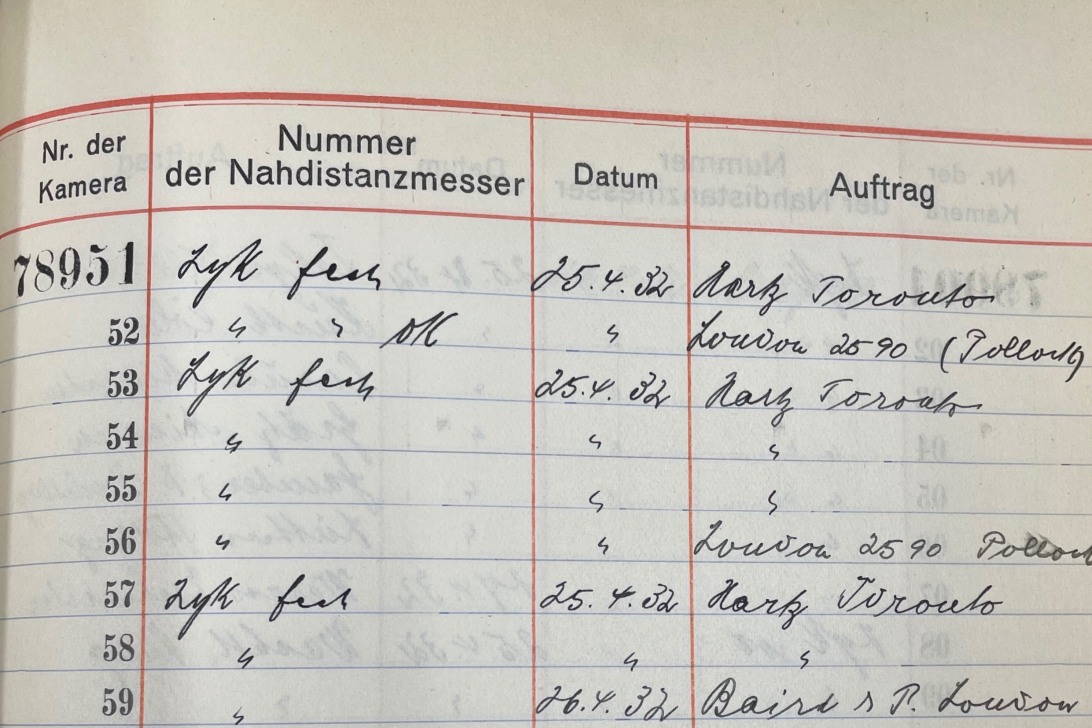 Nr. der Kamera Nummer der Nahdistanzmesser Datum Auftrag
78951 Zyk fest 25.4.32 Hartz Toronto
52 " " OK " London 2590 (Pollock)
53 Zyk fest 25.4.32 Hartz Toronto
54 " " "
55 " " "
56 " " London 2590 Pollock
57 Zyk fest 25.4.32 Hartz Toronto
58 " " "
59 " 26.4.32 Baird & P. London